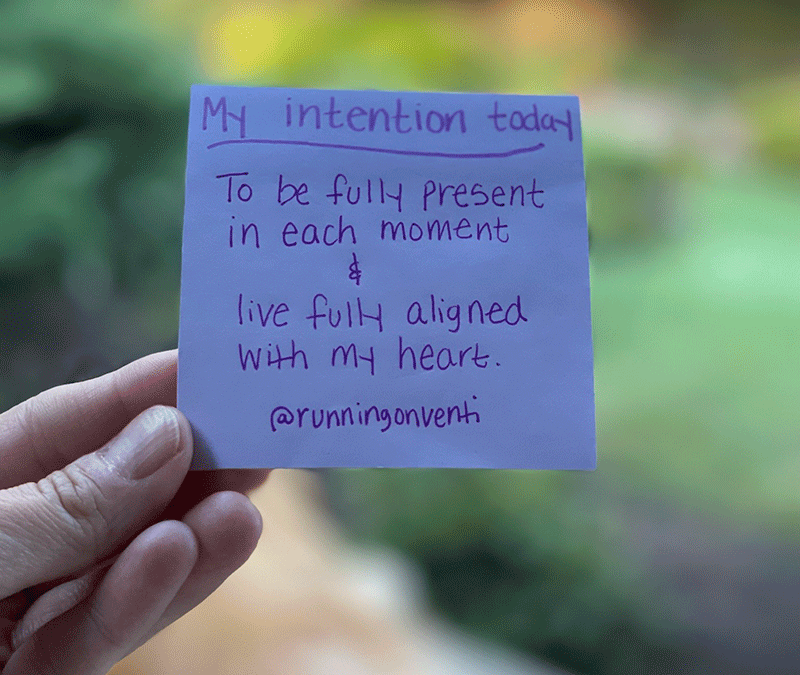 My intention today
To be fully present
in each moment
&
live fully aligned
with my heart.
@runningonventi